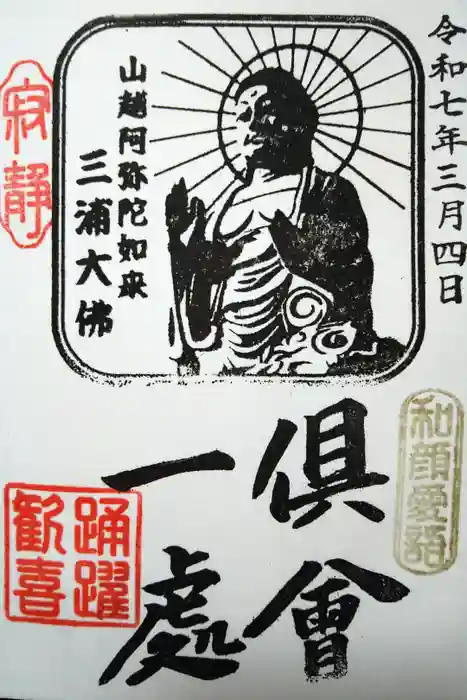 令和七年三月四日
山越阿弥陀如来
三浦大佛
寂静
倶會
一處
和顔愛語
踊躍
歓喜